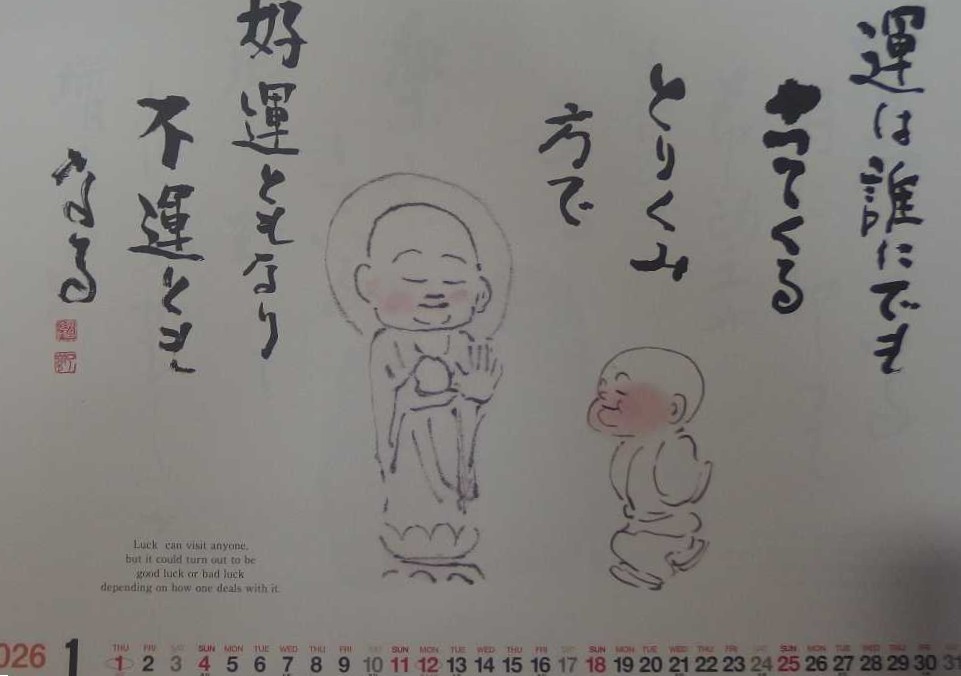 運は誰にでも
やってくる
とりくみ
方で
好運ともなり
不運とも
なる
Luck can visit anyone,
but it could turn out to be
good luck or bad luck
depending on how one deals with it.
026 1
THU FRI SAT SUN MON TUE WED THU FRI SAT SUN MON TUE WED THU FRI SAT SUN MON TUE WED THU FRI SAT SUN MON TUE WED THU FRI SAT
1 2 3 4 5 6 7 8 9 10 11 12 13 14 15 16 17 18 19 20 21 22 23 24 25 26 27 28 29 30 31